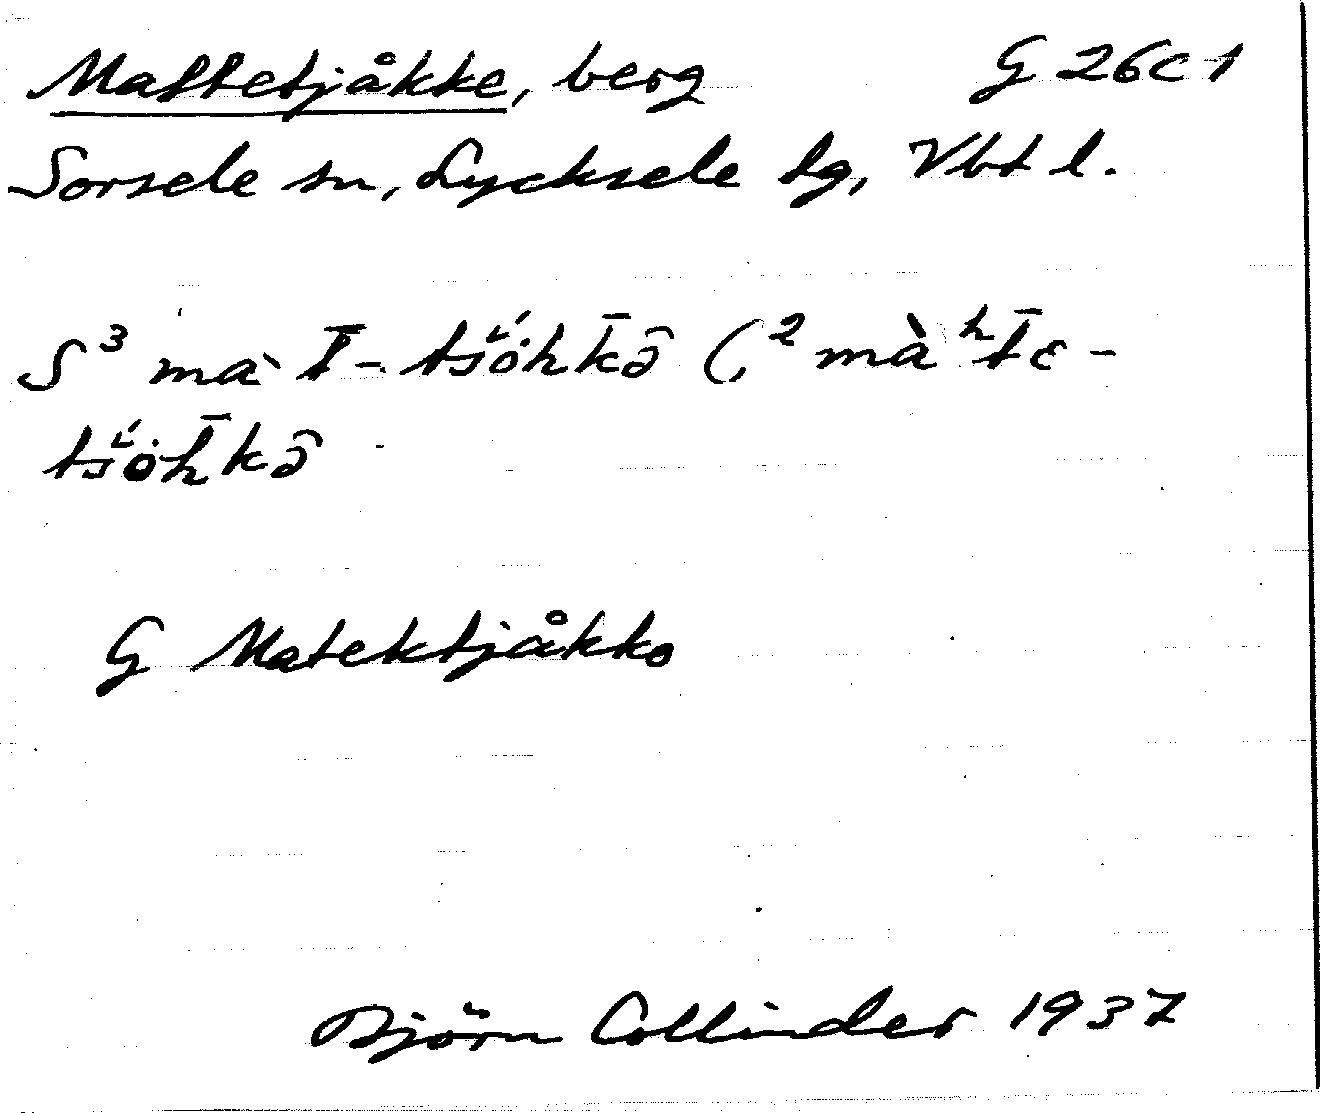 Mattetjåkke, berg G 26c1
Sorsele sn, Lycksele lg, Vbt l.
S³ mà t̄-tšö́hk̄ə̑ (,² màʰt̄ɛ-
tšö́h̄kə̑
G Matektjåkko
Björn Collinder 1937